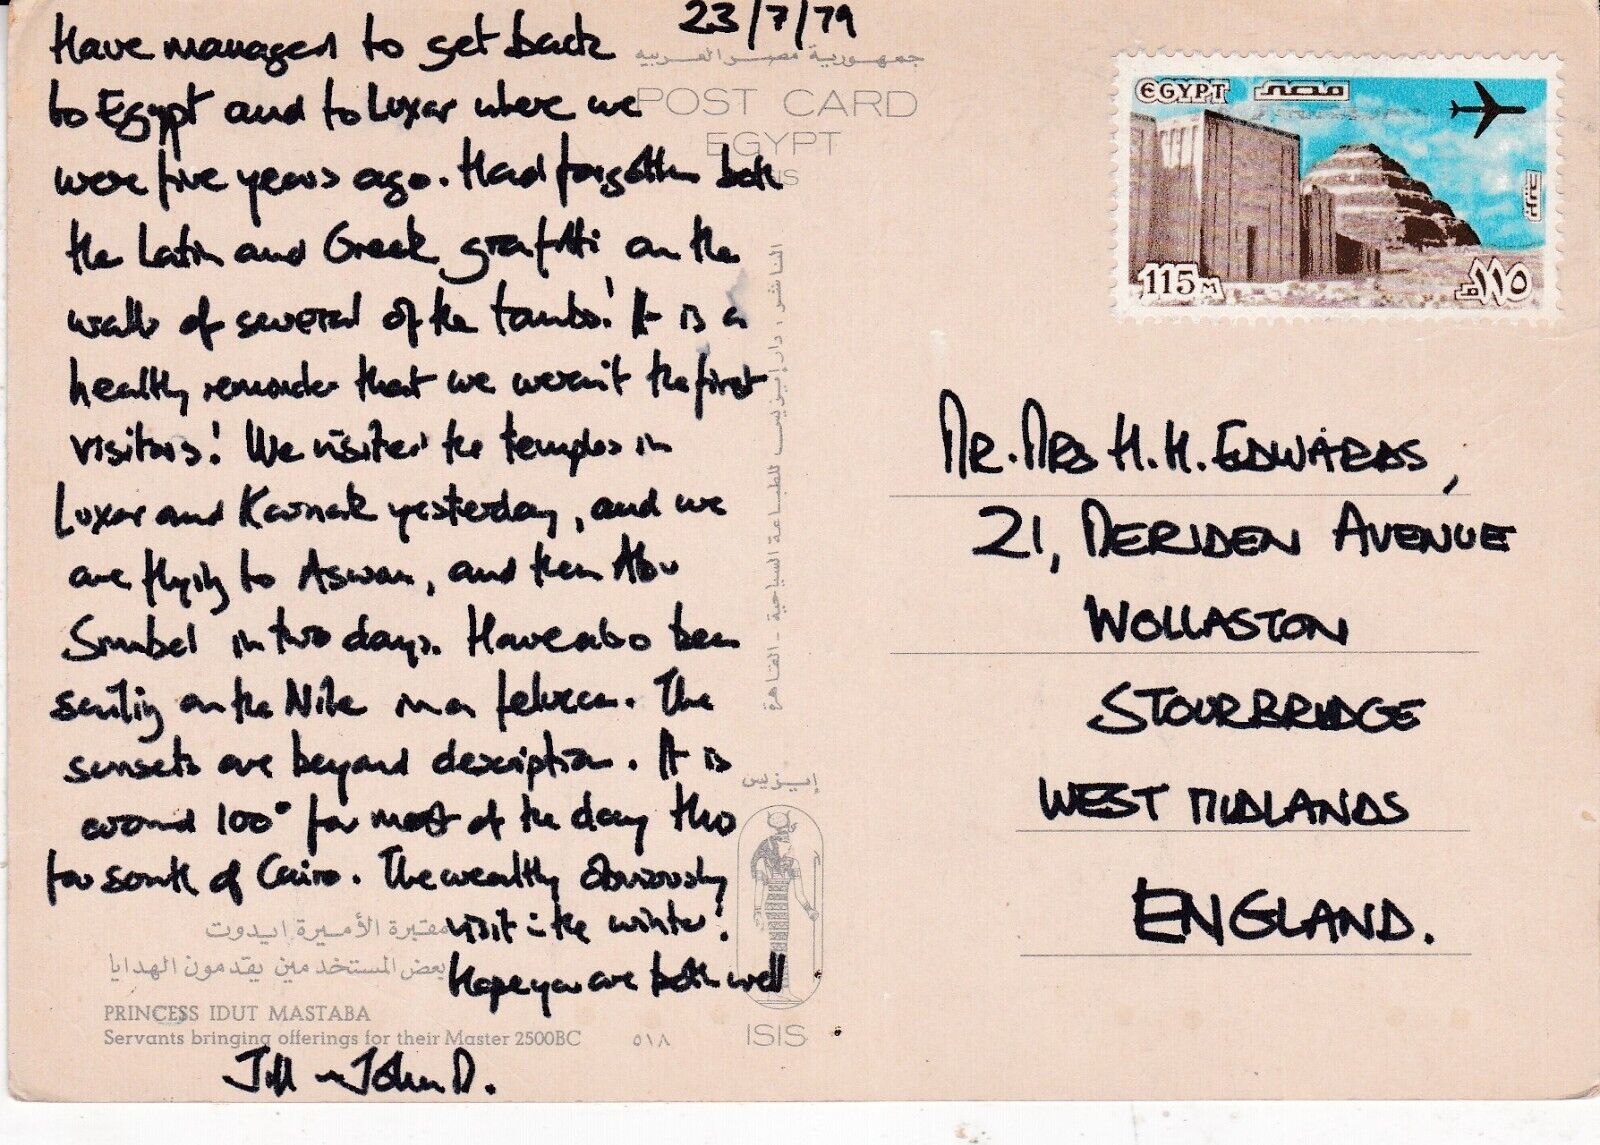 23/7/79
Have managed to get back
to Egypt and to Luxor where we
were five years ago. Had forgotten both
the Latin and Greek graffitti on the
walls of several of the tombs! It is a
healthy reminder that we weren't the first
visitors! We visited the temples in
Luxor and Karnak yesterday, and we
are flying to Aswan, and then Abu
Simbel in two days. Have also been
sailing on the Nile in a felucca. The
sunsets are beyond description. It is
around 100° for most of the day this
far south of Cairo. The wealthy obviously
visit in the winter!
Hope you are both well
Jill John D.
جمهورية مصر العربيه
POST CARD
EGYPT
الناشر: دار إيزيس للطباعة السياحية - القاهرة
إيزيس
ISIS
مقبرة الأميرة ايدوت
بعض المستخدمين يقدمون الهدايا
PRINCESS IDUT MASTABA
Servants bringing offerings for their Master 2500BC
٥١٨
EGYPT مصر
115 M
١١٥ م
MR. MRS H. H. EDWARDS,
21, MERIDEN AVENUE
WOLLASTON
STOURBRIDGE
WEST MIDLANDS
ENGLAND.